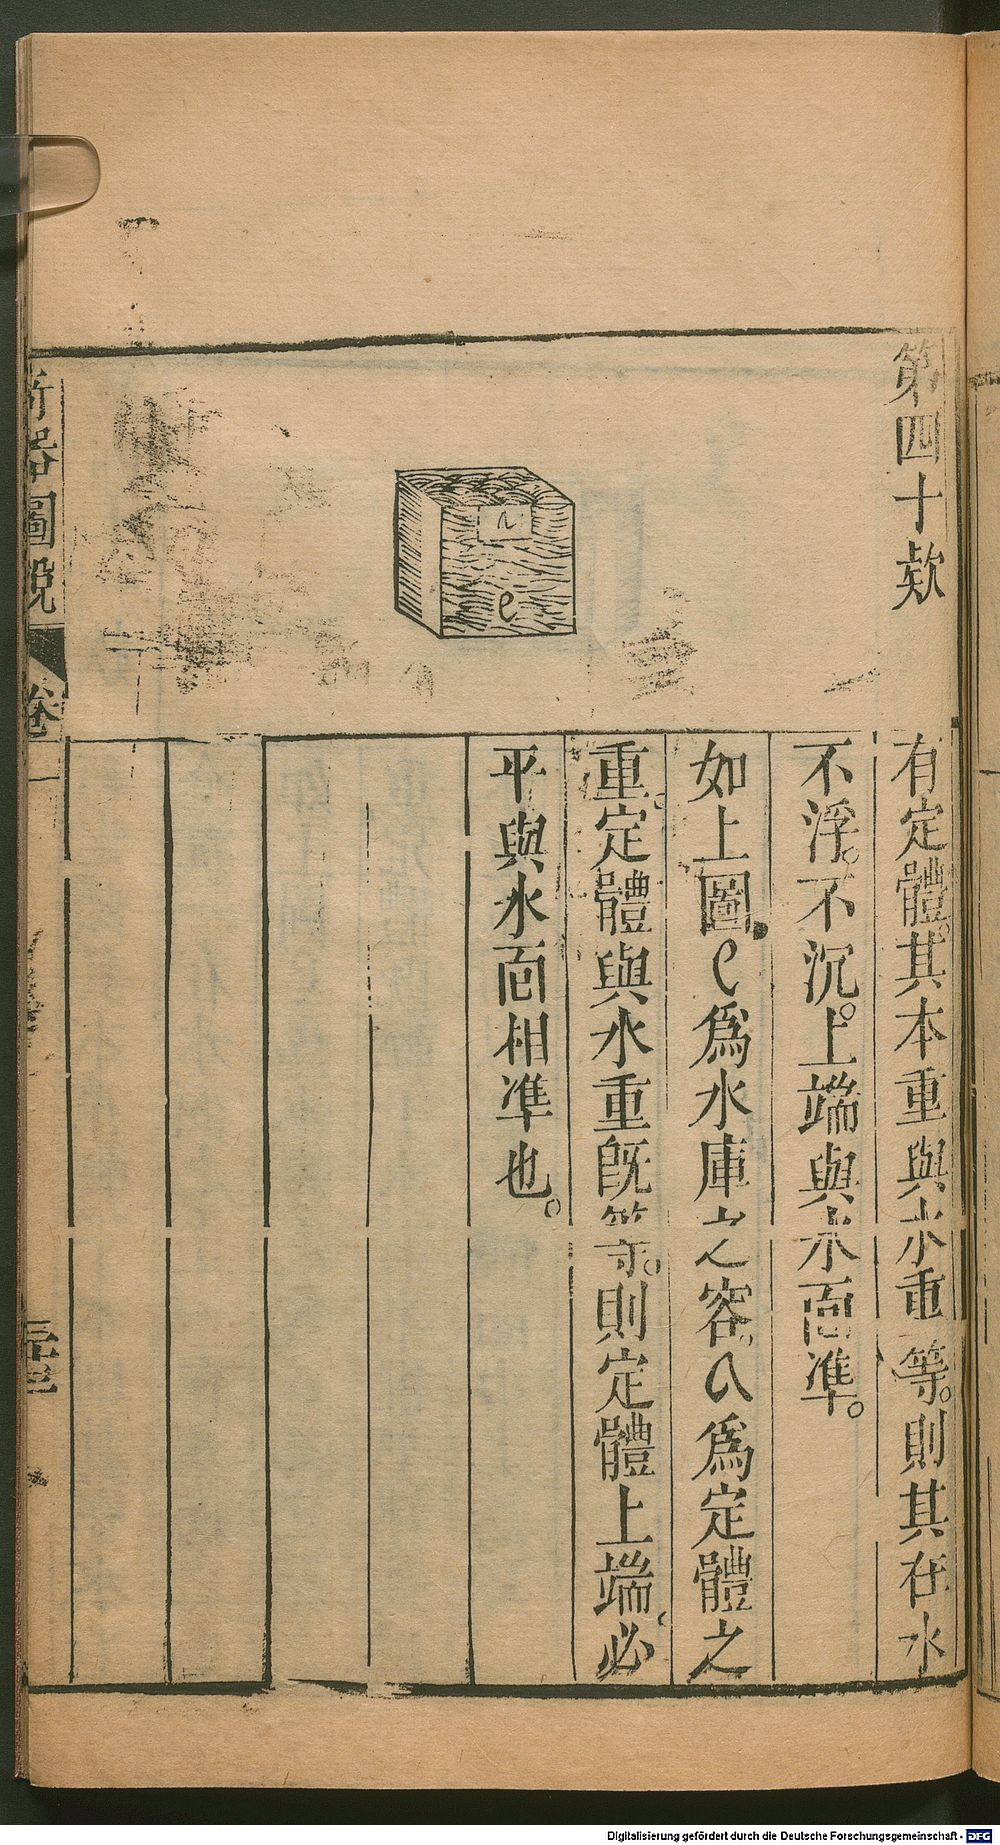 第四十款
有定體。其本重與水重等。則其在水
不浮。不沉。上端與水面準。
如上圖。ㄟ為水庫之容。ㄟ為定體之
重。定體與水重既等。則定體上端必
平與水面相準也。
器圖說 卷一
Digitalisierung gefördert durch die Deutsche Forschungsgemeinschaft - DFG